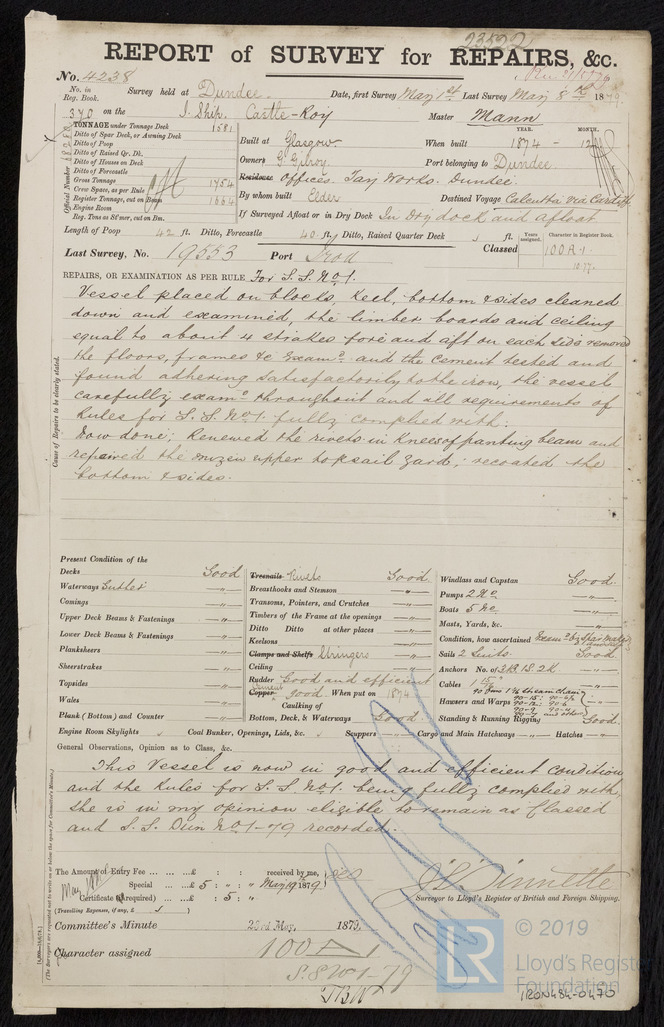 23522
REPORT of SURVEY for REPAIRS, &c.
No. 4238
No. in Reg. Book. Survey held at Dundee. Date, first Survey May 1st Last Survey May 8th 1879
370 on the I. Ship. Castle-Roy Master Mann
TONNAGE under Tonnage Deck 1581
Ditto of Spar Deck, or Awning Deck
Ditto of Poop
Ditto of Raised Qr. Dk.
Ditto of Houses on Deck
Ditto of Forecastle
Gross Tonnage 1754
Crew Space, as per Rule
Register Tonnage, cut on Beam 1664
Engine Room
Reg. Tons as St'mer, cut on Bm.
Official Number
YEAR. MONTH.
Built at Glasgow When built 1874 - 12
Owners G. Gilroy. Port belonging to Dundee
Residence Offices. Tay Works. Dundee.
By whom built Elder Destined Voyage Calcutta via Cardiff
If Surveyed Afloat or in Dry Dock In Dry dock and afloat
Length of Poop 42 ft. Ditto, Forecastle 40 ft. Ditto, Raised Quarter Deck ft.
Years assigned. Character in Register Book.
Last Survey, No. 19553 Port Classed 100A1
1877.
REPAIRS, OR EXAMINATION AS PER RULE For S.S. No 1.
Cause of Repairs to be clearly stated.
Vessel placed on blocks, Keel, bottom & sides cleaned
down and examined, the limber boards and ceiling
equal to about 4 strakes fore and aft on each side removed
the floors, frames &c Examd. and the cement tested and
found adhering satisfactorily to the iron, the vessel
carefully examd. throughout and all requirements of
Rules for S.S. No 1. fully complied with.
Now done; Renewed the rivets in Knees of panting beam and
repaired the mizen upper topsail yard; recoated the
bottom & sides.
Present Condition of the
Decks Good
Waterways Gutter "
Comings "
Upper Deck Beams & Fastenings "
Lower Deck Beams & Fastenings "
Planksheers "
Sheerstrakes "
Topsides "
Wales "
Plank (Bottom) and Counter "
Treenails Rivets Good.
Breasthooks and Stemson "
Transoms, Pointers, and Crutches "
Timbers of the Frame at the openings "
Ditto Ditto at other places "
Keelsons "
Clamps and Shelfs Stringers "
Ceiling "
Rudder Good and efficient
Copper Cement good. When put on 1874
Caulking of
Bottom, Deck, & Waterways Good
Windlass and Capstan Good.
Pumps 2 No "
Boats 5 No "
Masts, Yards, &c. "
Condition, how ascertained
Sails 2 Suits Good
Anchors No. of 3B. 1S. 2K "
Cables "
Hawsers and Warps
Standing & Running Rigging Good.
Engine Room Skylights Coal Bunker, Openings, Lids, &c. Scuppers " Cargo and Main Hatchways " Hatches "
General Observations, Opinion as to Class, &c.
This Vessel is now in good and efficient condition
and the Rules for S.S. No 1. being fully complied with,
she is in my opinion eligible to remain as Classed
and S.S. Dun No 1-79 recorded.
(The Surveyors are requested not to write on or below the space for Committee's Minute.)
The Amount of Entry Fee ... £ : : received by me,
Special ... £ 5 : " : " May 19th 1879
Certificate (if required) : 5 : "
(Travelling Expenses, if any, £ )
Surveyor to Lloyd's Register of British and Foreign Shipping.
Committee's Minute 23rd May, 1879.
Character assigned 100 A 1
S.S No 1-79
© 2019
LR
Lloyd's Register
Foundation
IRON484-0470